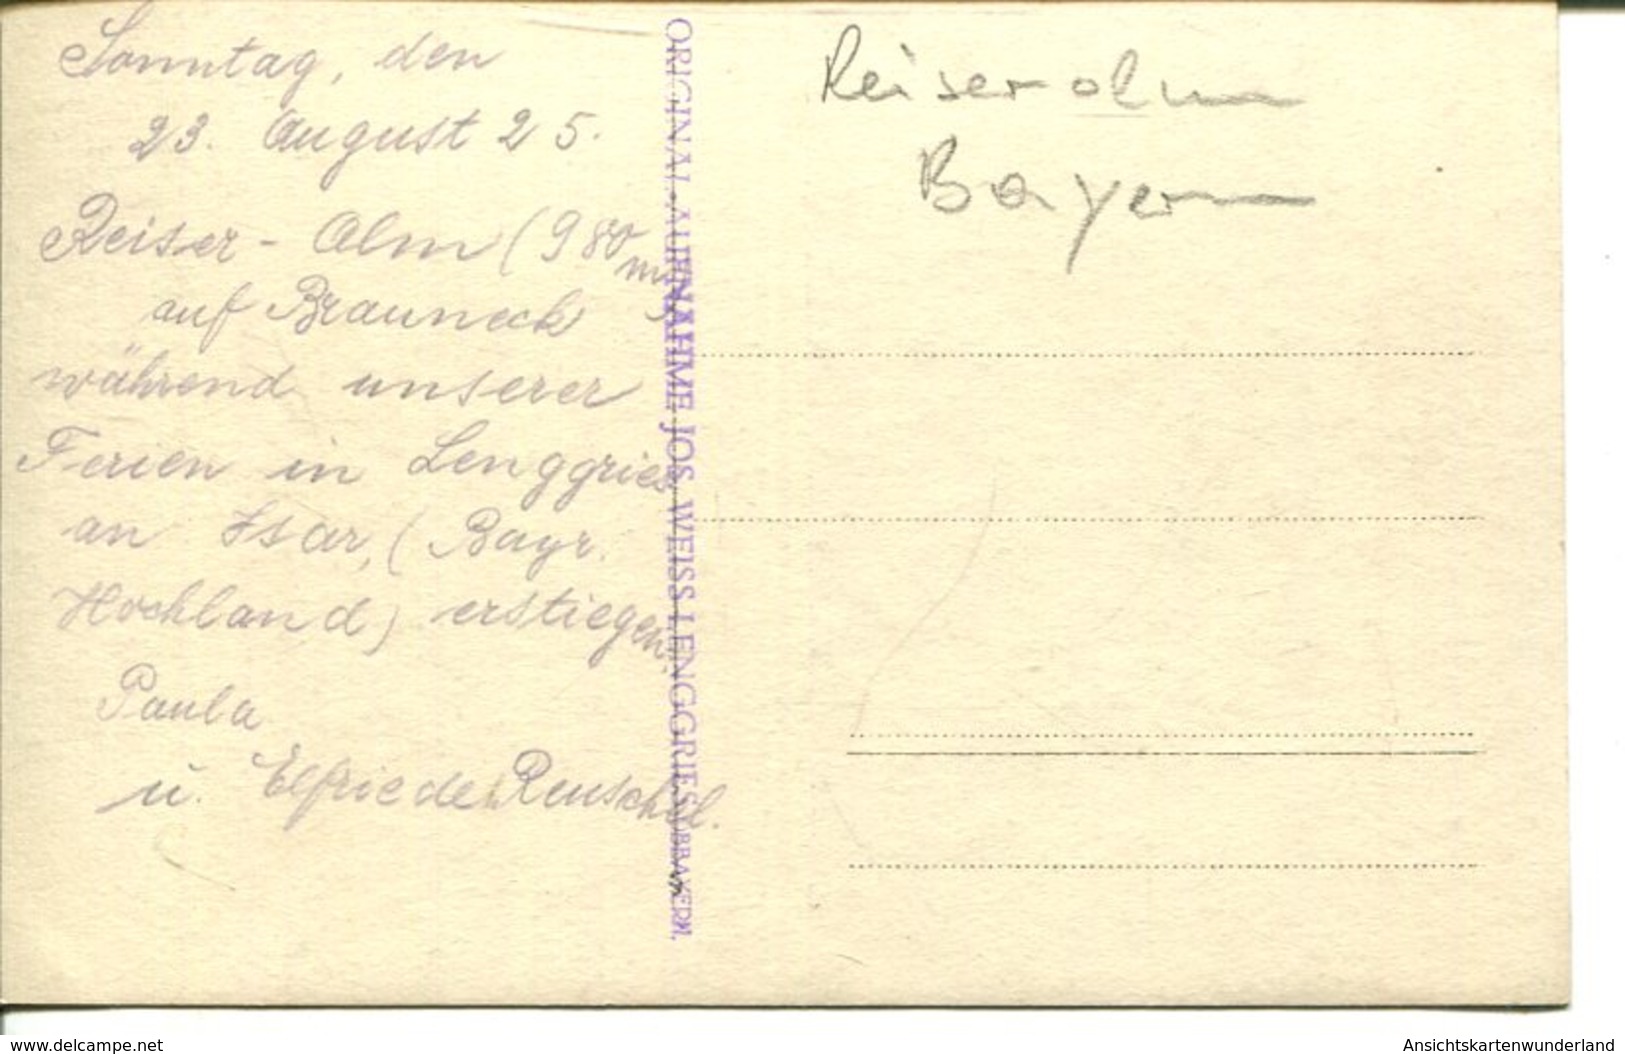 Sonntag, den
23. August 25.
Reiser-Alm (980
m)
auf Brauneck
während unserer
Ferien in Lenggries
an Isar, (Bayr.
Hochland) erstiegen.
Paula
u. Elfriede Reuschel.
ORIGINAL-AUFNAHME JOS. WEISS LENGGRIES OBBAYERN.
Reiseralm
Bayern
www.delcampe.net
Ansichtskartenwunderland